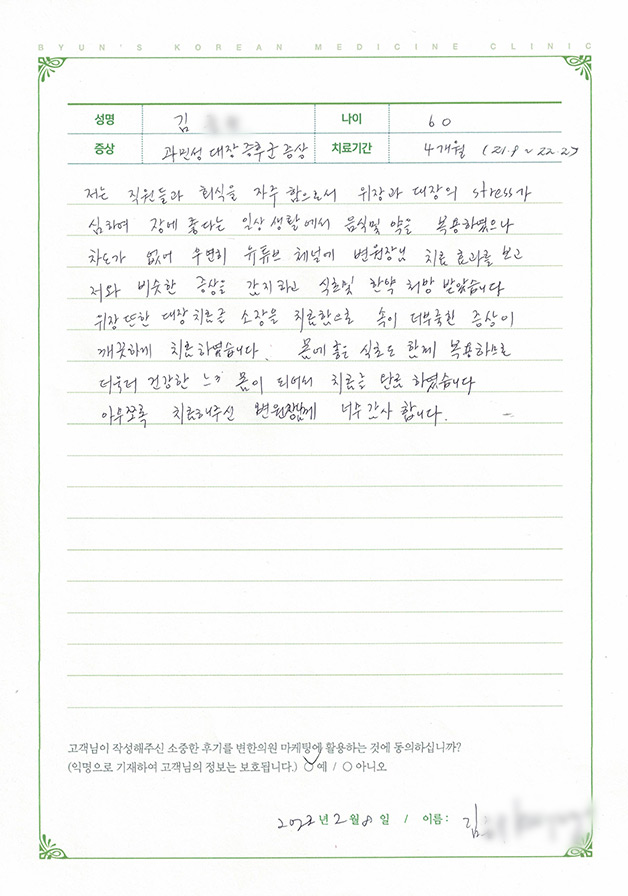 BYUN'S KOREAN MEDICINE CLINIC
성명 김 나이 60
증상 과민성 대장 증후군 증상 치료기간 4개월 (21.9 ~ 22.2)
저는 직원들과 회식을 자주 함으로서 위장과 대장의 stress가
심하여 장에 좋다는 일상 생활에서 음식및 약을 복용하였으나
차도가 없어 우연히 유튜브 채널에 변원장님 치료 효과를 보고
저와 비슷한 증상을 갖지하고 식초및 한약 처방 받았습니다
위장 또한 대장 치료는 소장을 치료함으로 속이 더부룩한 증상이
깨끗하게 치료하였습니다. 몸에 좋을 식초도 함께 복용하므로
더욱더 건강한 몸이 되어서 치료를 완료 하였습니다
아무쪼록 치료해주신 변원장님께 너무 감사 합니다.
고객님이 작성해주신 소중한 후기를 변한의원 마케팅에 활용하는 것에 동의하십니까?
(익명으로 기재하여 고객님의 정보는 보호됩니다.) ○ 예 / ○ 아니오
년 2 월 8 일 / 이름 :